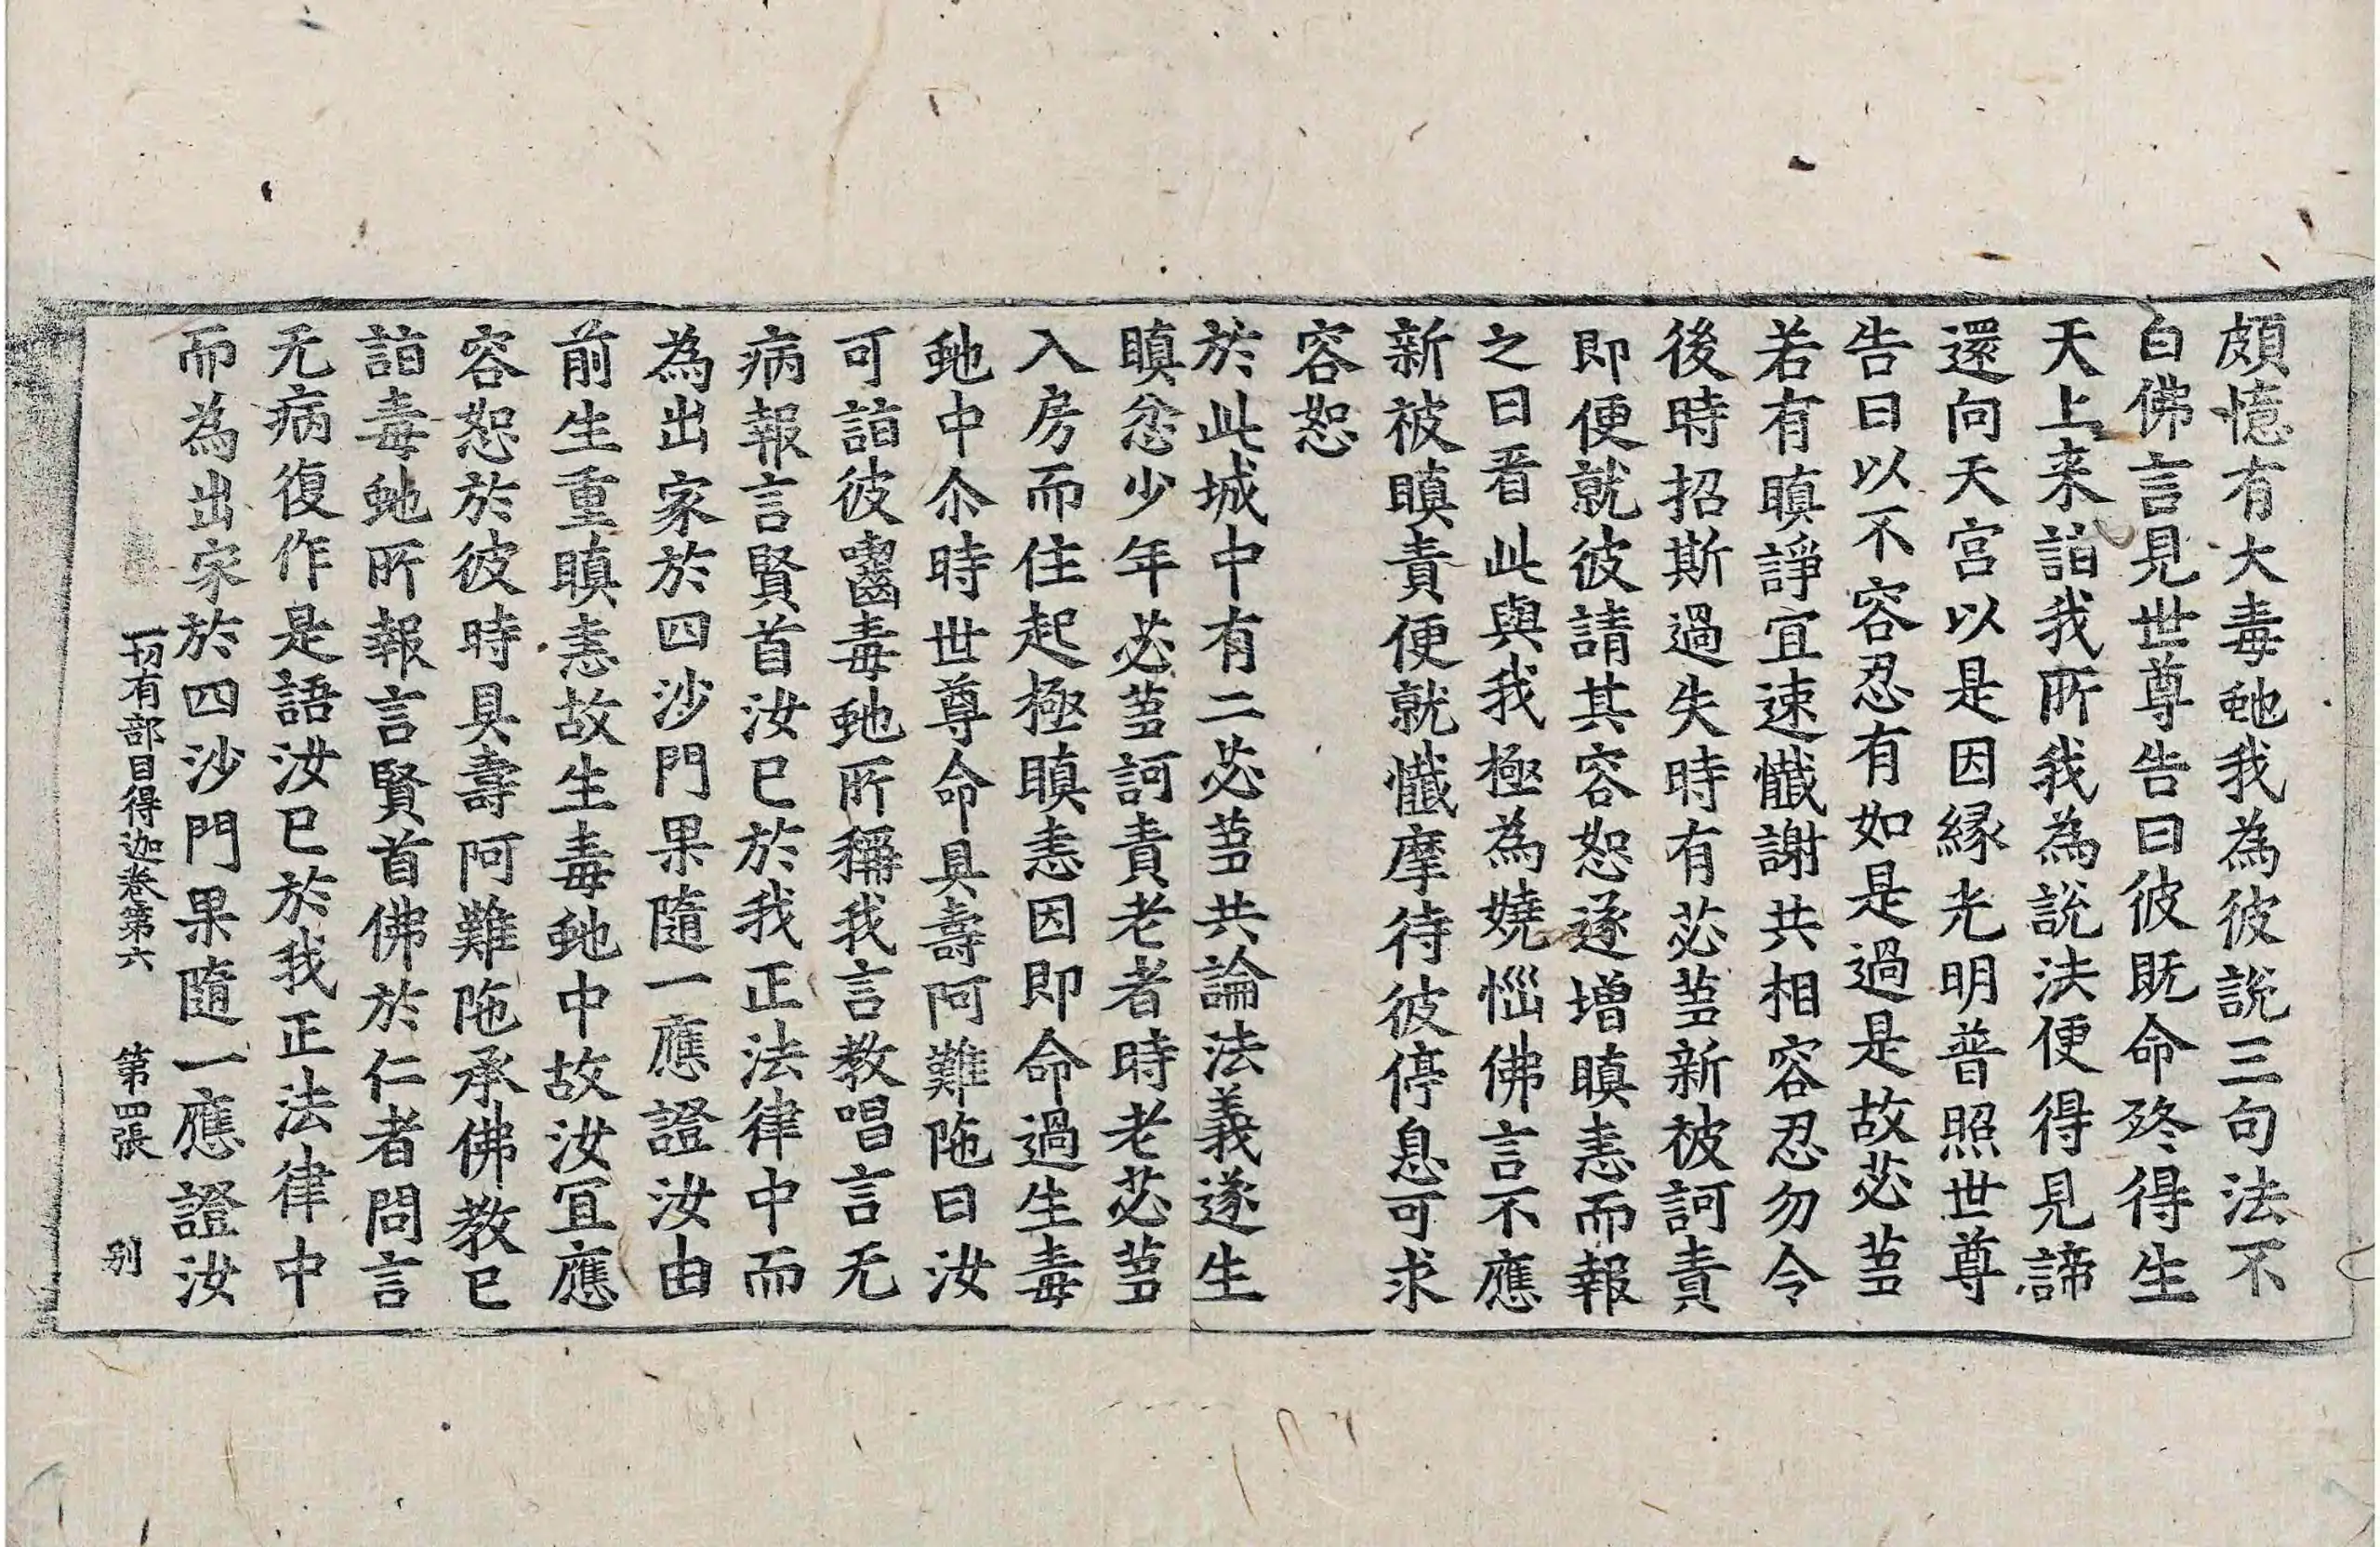 頗憶有大毒虵我為彼說三句法不
白佛言見世尊告曰彼旣命終得生
天上来詣我所我為說法便得見諦
還向天宮以是因縁光明普照世尊
告曰以不容忍有如是過是故苾蒭
若有瞋諍宜速懺謝共相容忍勿令
後時招斯過失時有苾蒭新被訶責
即便就彼請其容恕遂增瞋恚而報
之曰看此與我極為嬈惱佛言不應
新被瞋責便就懺摩待彼停息可求
容恕
於此城中有二苾蒭共論法義遂生
瞋忿少年苾蒭訶責老者時老苾蒭
入房而住起極瞋恚因即命過生毒
虵中尒時世尊命具壽阿難陁曰汝
可詣彼齧毒虵所稱我言教唱言无
病報言賢首汝已於我正法律中而
為出家於四沙門果隨一應證汝由
前生重瞋恚故生毒虵中故汝冝應
容恕於彼時具壽阿難陁承佛教已
詣毒虵所報言賢首佛於仁者問言
无病復作是語汝已於我正法律中
而為出家於四沙門果隨一應證汝
一切有部目得迦卷第六 第四張 别